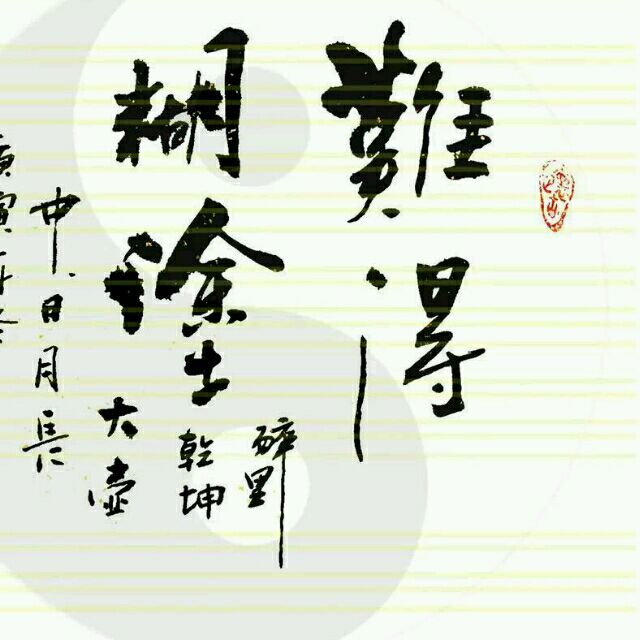 難得
糊塗
醉里
乾坤
大壺
中日月長
庚寅年冬